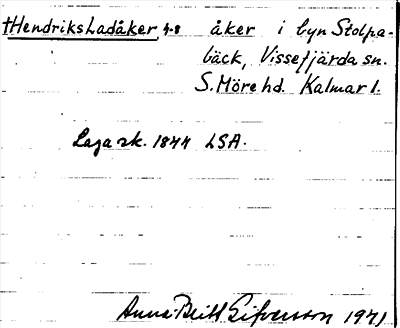 †Hendriks Ladåker, 4-8 åker i byn Stolpa-
bäck, Vissefjärda sn.
S. Möre hd. Kalmar l.
Laga sk. 1844 LSA.
Anna-Britt Sifvensson 1971